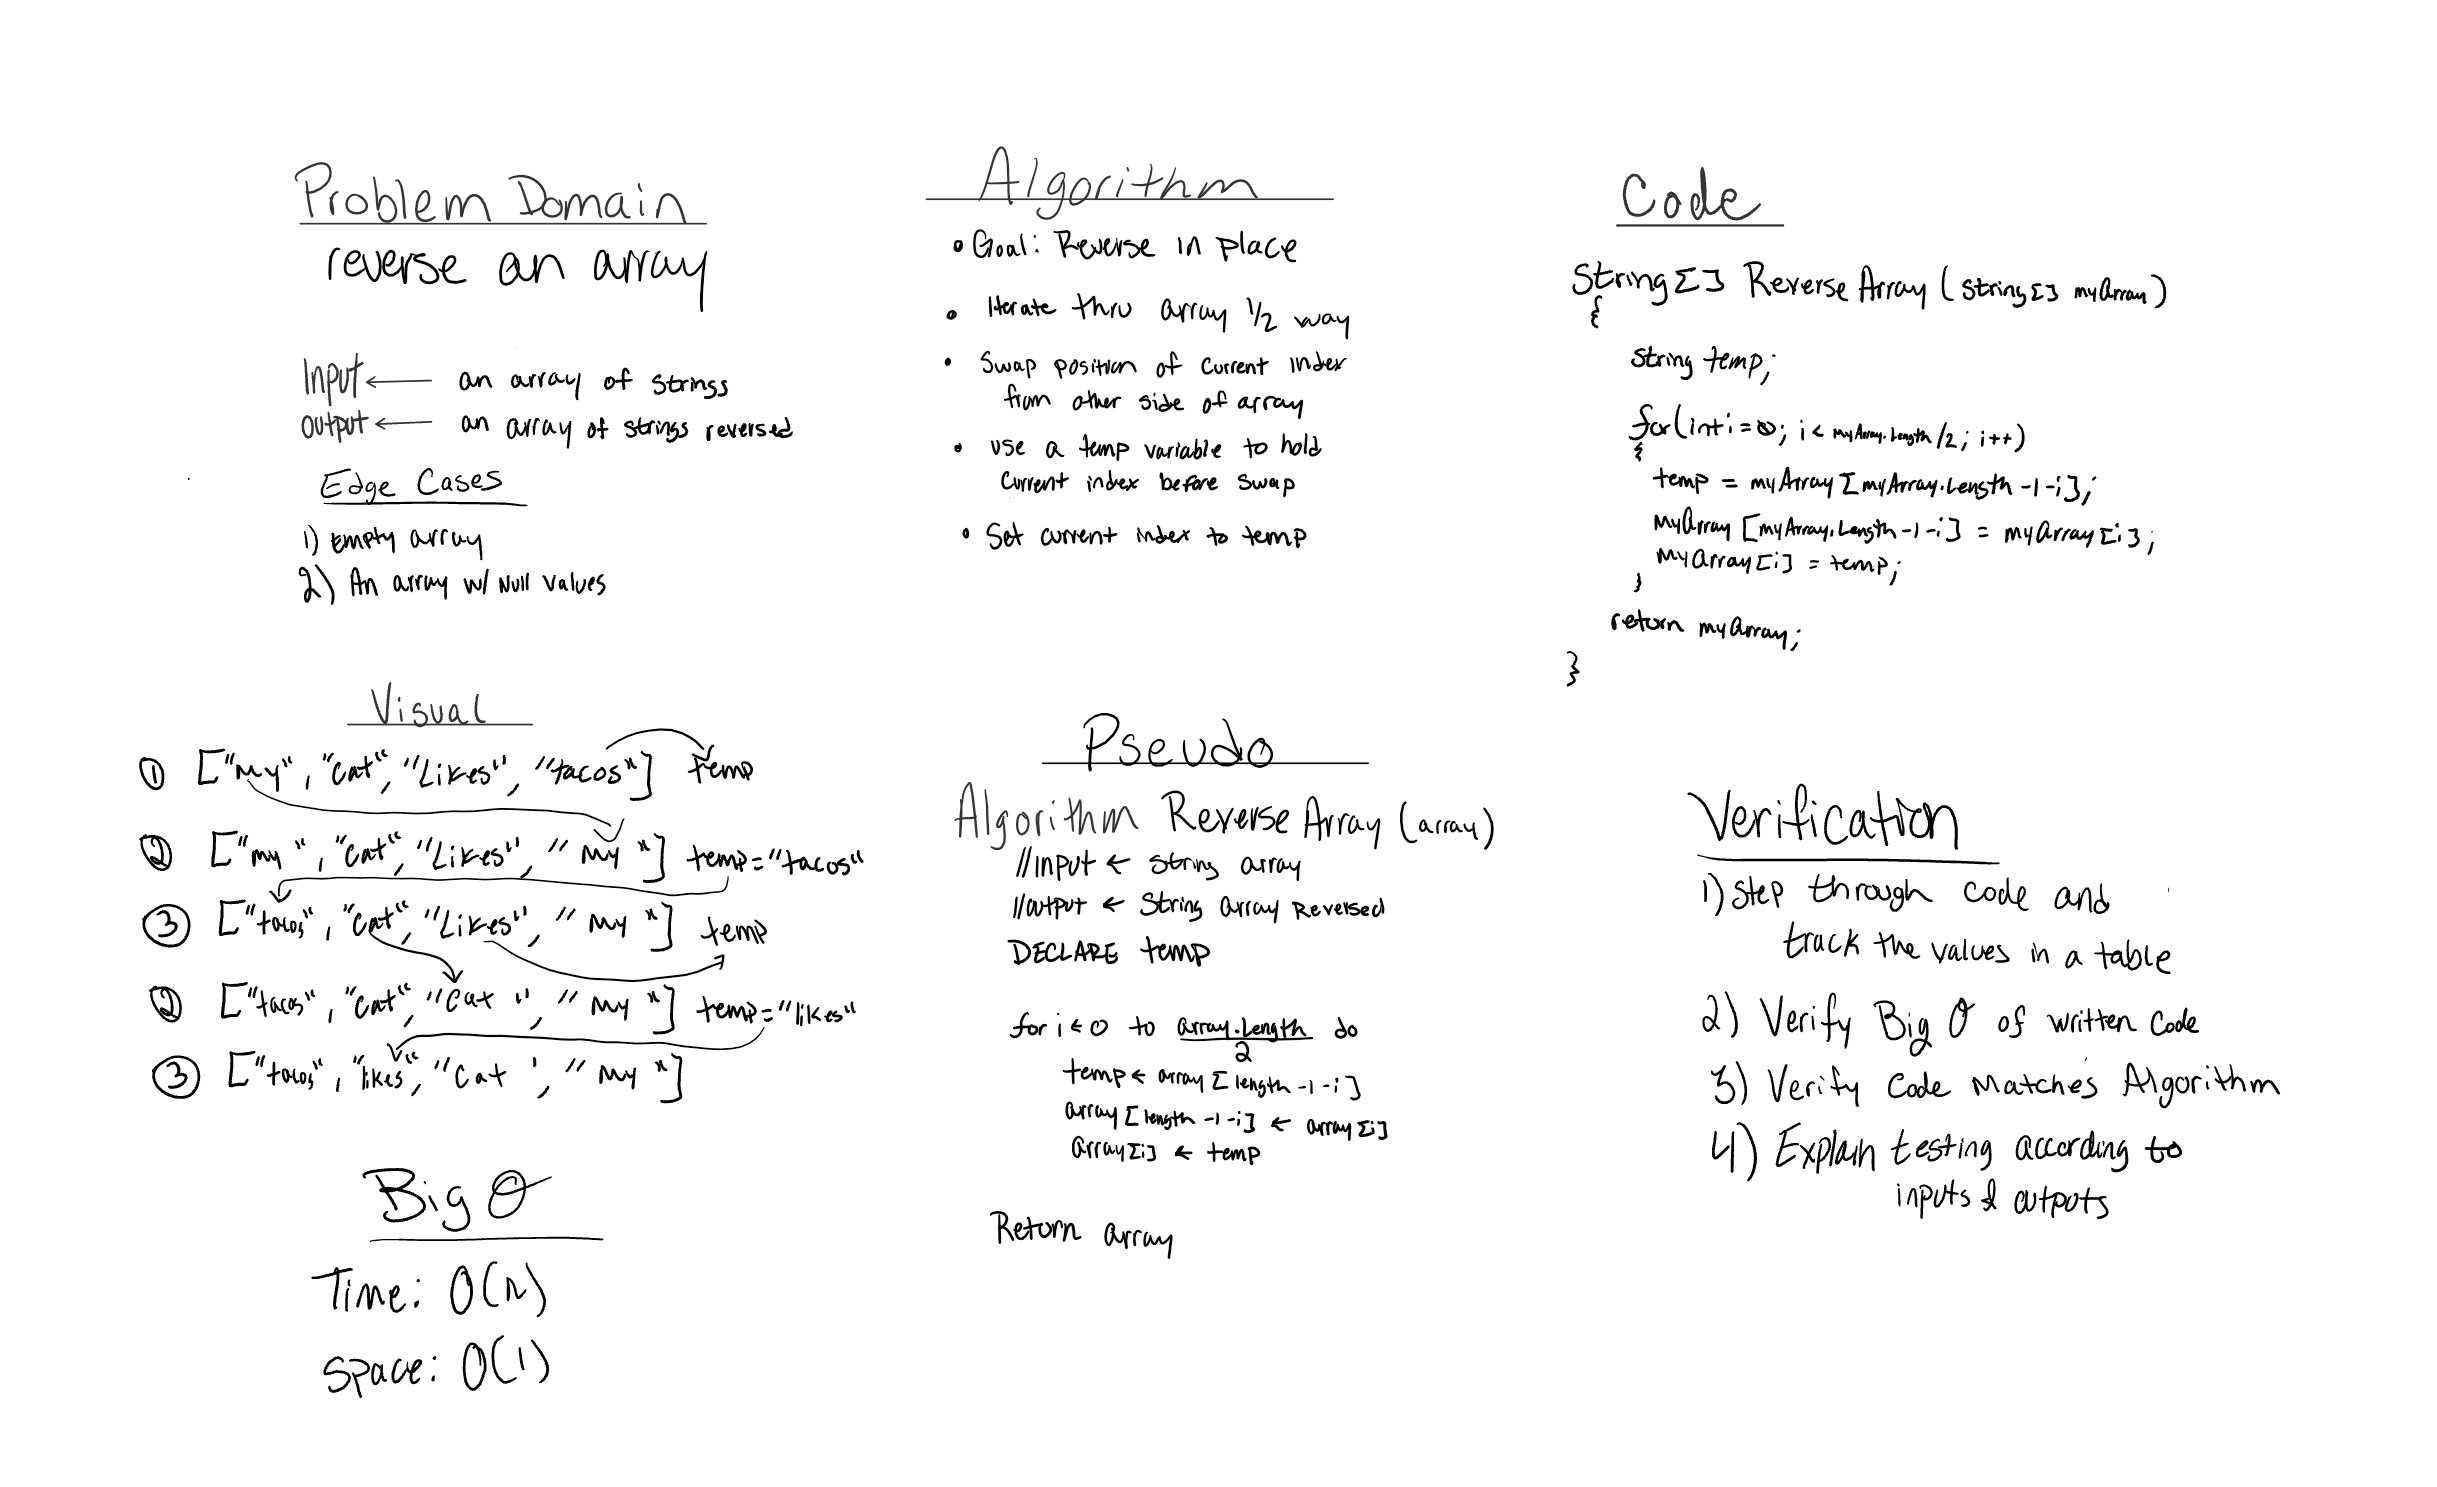 Problem Domain
reverse an array
Input ← an array of strings
output ← an array of strings reversed
Edge Cases
1) Empty array
2) An array w/ Null values
Visual
① ["My", "Cat", "Likes", "tacos"] temp
② ["my", "Cat", "Likes", "My"] temp="tacos"
③ ["tacos", "Cat", "Likes", "My"] temp
② ["tacos", "Cat", "Cat", "My"] temp="likes"
③ ["tacos", "likes", "Cat', "My"]
Big O
Time: O(n)
Space: O(1)
Algorithm
• Goal: Reverse in place
• Iterate thru array 1/2 way
• Swap position of current index
from other side of array
• use a temp variable to hold
current index before swap
• Set current index to temp
Pseudo
Algorithm Reverse Array (array)
//input ← string array
//output ← String array Reversed
DECLARE temp
for i ← 0 to array.Length do
2
temp ← array [length -1 -i]
array [length -1 -i] ← array[i]
array[i] ← temp
Return array
Code
String[] Reverse Array (string[] myArray)
{
string temp;
for(int i=0; i < myArray.Length/2; i++)
{
temp = myArray [myArray.Length -1-i];
myArray [myArray.Length-1-i] = myArray[i];
myArray[i] = temp;
}
return myArray;
}
Verification
1) Step through code and
track the values in a table
2) Verify Big O of written code
3) Verify Code Matches Algorithm
4) Explain testing according to
inputs & outputs